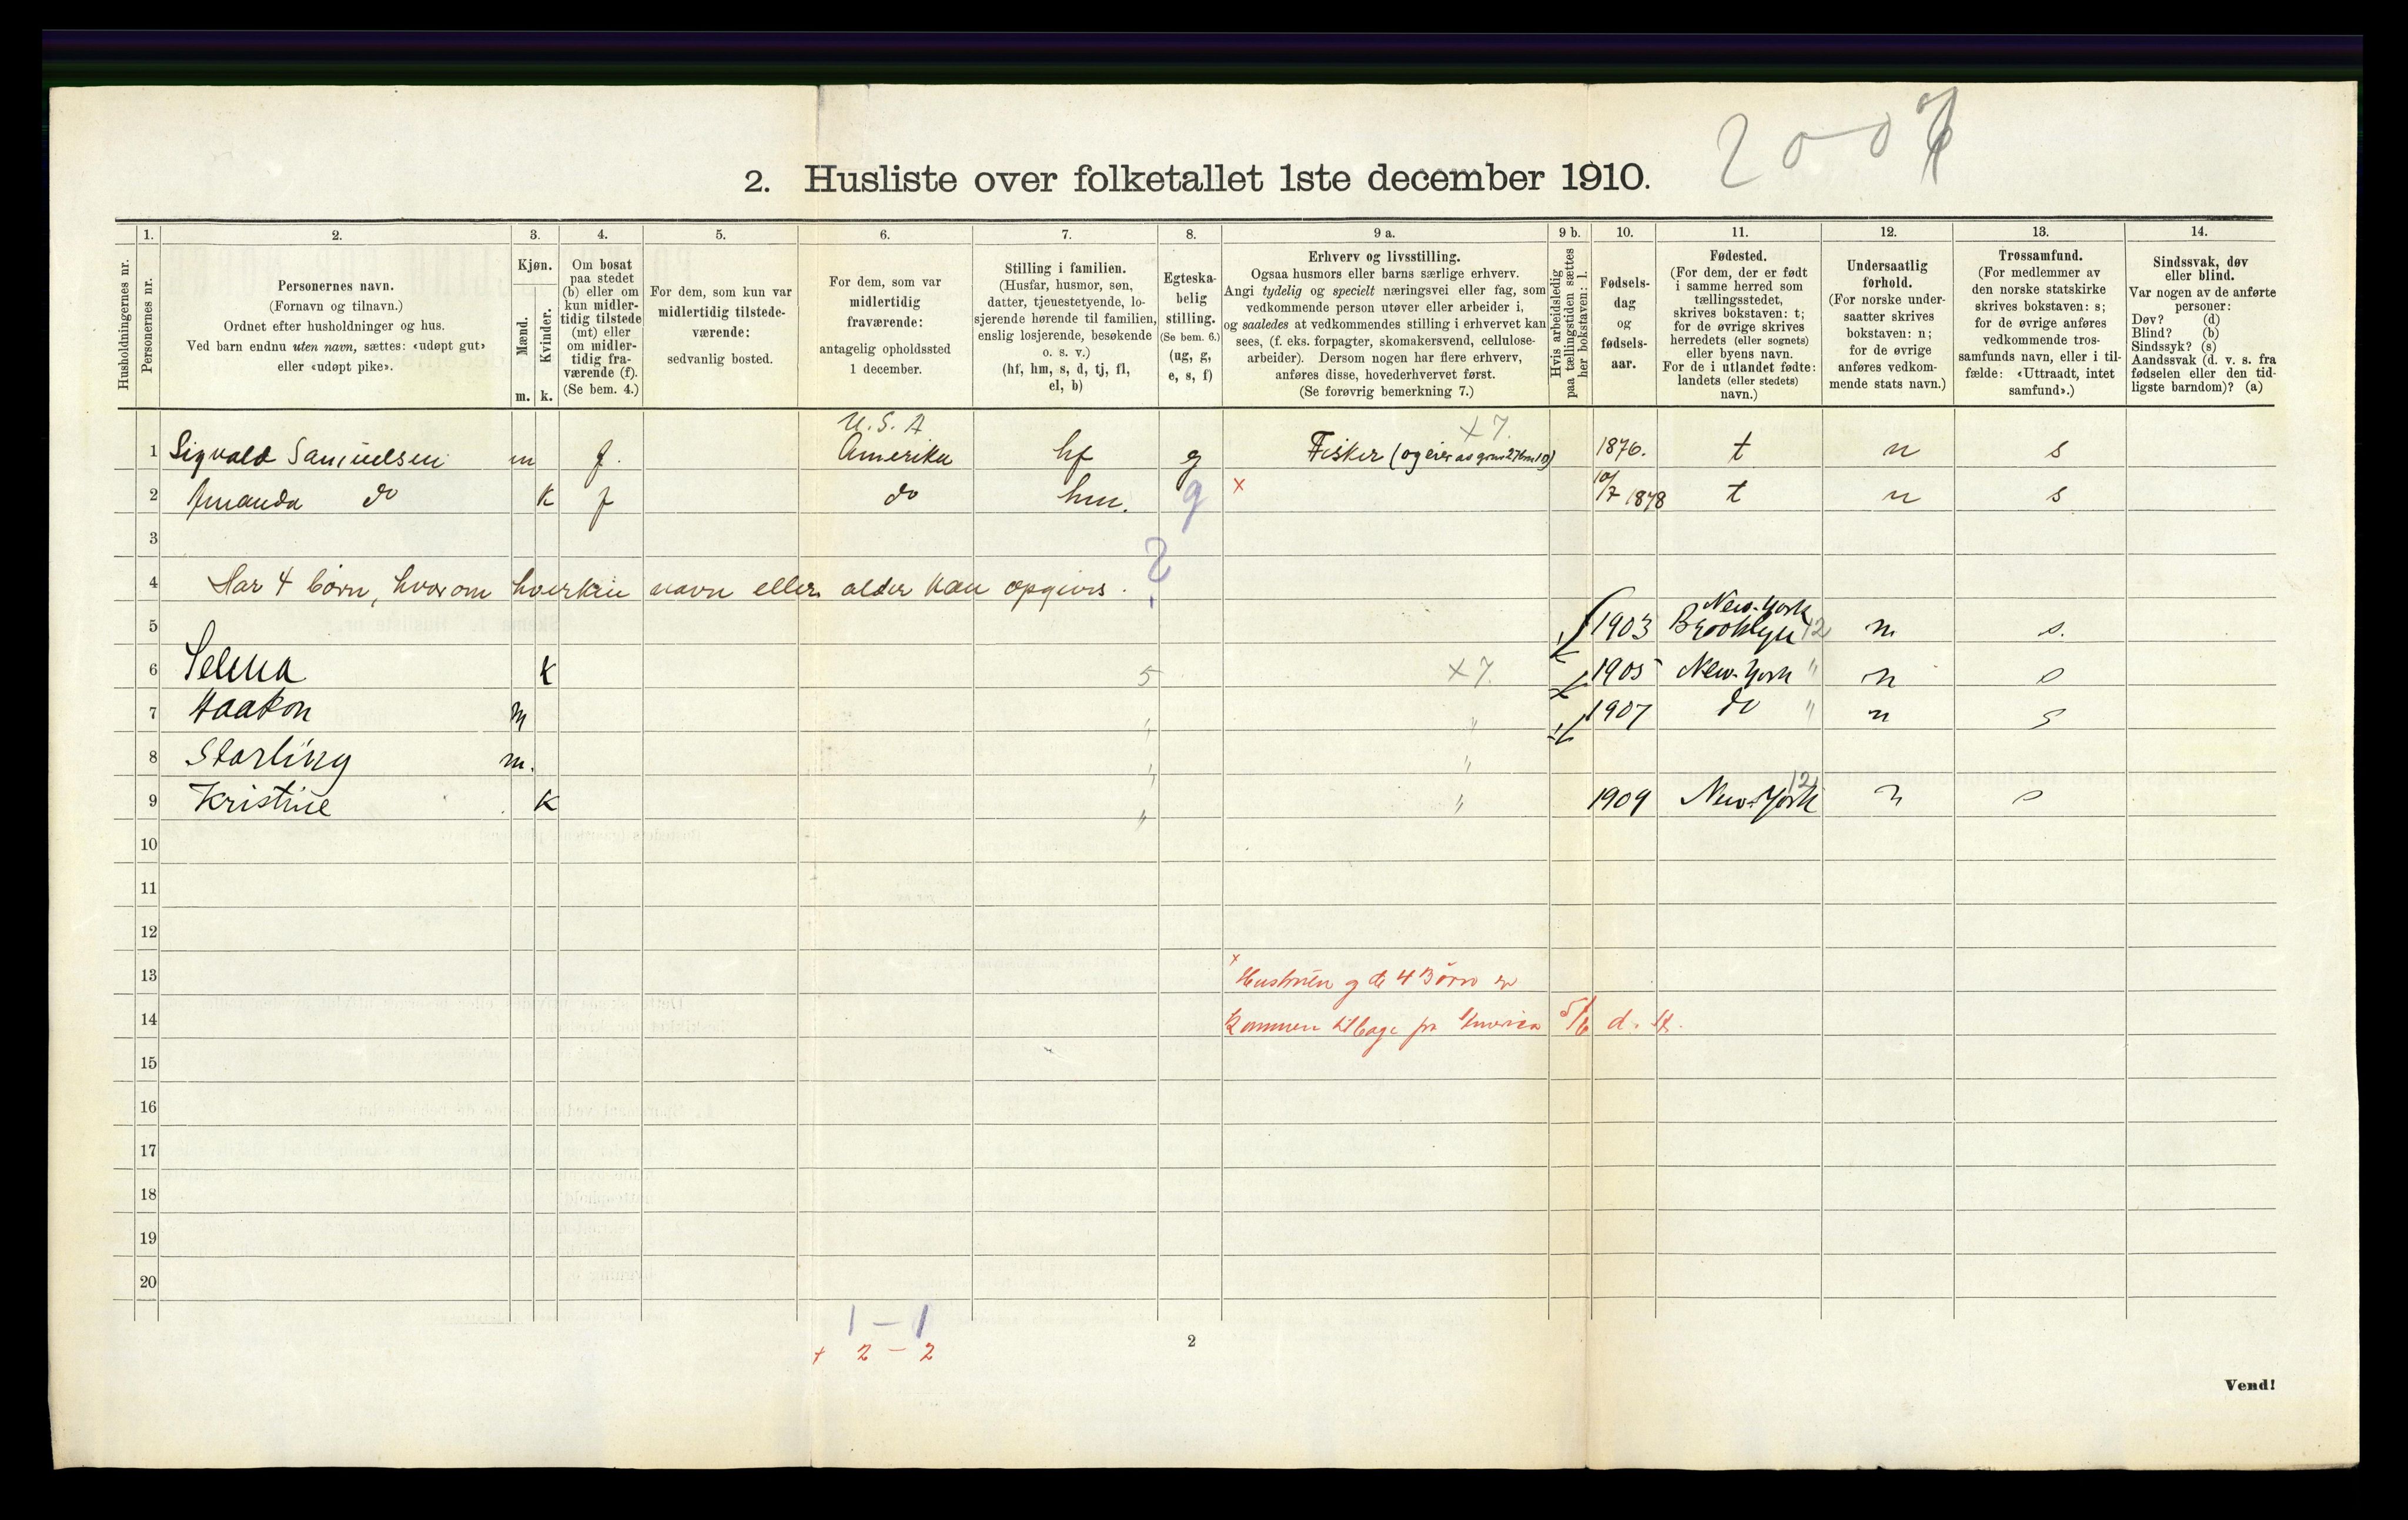 2. Husliste over folketallet 1ste december 1910.
1. 2. 3. 4. 5. 6. 7. 8. 9 a. 9 b. 10. 11. 12. 13. 14.
Husholdningernes nr.
Personernes nr.
Personernes navn.
(Fornavn og tilnavn.)
Ordnet efter husholdninger og hus.
Ved barn endnu uten navn, sættes: «udøpt gut»
eller «udøpt pike».
Kjøn.
Mænd.
Kvinder.
m. k.
Om bosat
paa stedet
(b) eller om
kun midler-
tidig tilstede
(mt) eller
om midler-
tidig fra-
værende (f).
(Se bem. 4.)
For dem, som kun var
midlertidig tilstede-
værende:
sedvanlig bosted.
For dem, som var
midlertidig
fraværende:
antagelig opholdssted
1 december.
Stilling i familien.
(Husfar, husmor, søn,
datter, tjenestetyende, lo-
sjerende hørende til familien,
enslig losjerende, besøkende
o. s. v.)
(hf, hm, s, d, tj, fl,
el, b)
Egteska-
belig
stilling.
(Se bem. 6.)
(ug, g,
e, s, f)
Erhverv og livsstilling.
Ogsaa husmors eller barns særlige erhverv.
Angi tydelig og specielt næringsvei eller fag, som
vedkommende person utøver eller arbeider i,
og saaledes at vedkommendes stilling i erhvervet kan
sees, (f. eks. forpagter, skomakersvend, cellulose-
arbeider). Dersom nogen har flere erhverv,
anføres disse, hovederhvervet først.
(Se forøvrig bemerkning 7.)
Hvis arbeidsledig
paa tællingstiden sættes
her bokstaven: l.
Fødsels-
dag
og
fødsels-
aar.
Fødested.
(For dem, der er født
i samme herred som
tællingsstedet,
skrives bokstaven: t;
for de øvrige skrives
herredets (eller sognets)
eller byens navn.
For de i utlandet fødte:
landets (eller stedets)
navn.)
Undersaatlig
forhold.
(For norske under-
saatter skrives
bokstaven: n;
for de øvrige
anføres vedkom-
mende stats navn.)
Trossamfund.
(For medlemmer av
den norske statskirke
skrives bokstaven: s;
for de øvrige anføres
vedkommende tros-
samfunds navn, eller i til-
fælde: «Uttraadt, intet
samfund».)
Sindssvak, døv
eller blind.
Var nogen av de anførte
personer:
Døv? (d)
Blind? (b)
Sindssyk? (s)
Aandssvak (d. v. s. fra
fødselen eller den tid-
ligste barndom)? (a)
U. S. A x 7.
1 Sigvald Samuelsen m f. Amerika hf g Fisker (og eier 1876. t n s
2 Amanda do k f do hm. g x 10/7 1878 t n s
3
4 Har 4 børn, hvorom hverken navn eller alder kan opgives. ?
New-York
5 1903 Brooklyn 12 n s.
6 Selma k 5 x 7. 1905 New-York " n s
7 Haakon m " " 1907 do " n s
8 Starling m. " "
9 Kristine k " " 1909 New-York 12 n s
10
11
12
13 x Hustruen og de 4 Børn er
14 kommen tilbage fra Amerika 5/6 d. A.
15
16
17
18
19
20
1 – 1
+ 2 – 2
2
Vend!